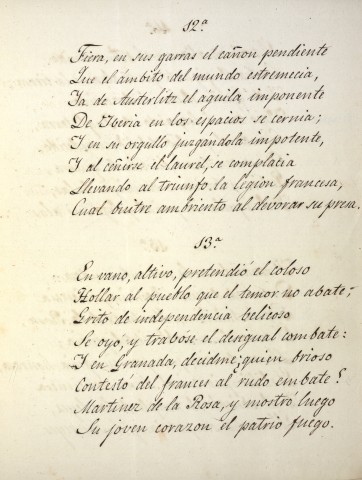 12.ª
Fiera, en sus garras el cañon pendiente
Que el ámbito del mundo estremecia,
Ya de Austerlitz el águila imponente
De Yberia en los espacios se cernia;
Y en su orgullo juzgándola impotente,
Y al ceñirse el laurel, se complacia
Llevando al triunfo la legion francesa,
Cual buitre ambriento al devorar su presa.
13.ª
En vano, altivo, pretendió el coloso
Hollar al pueblo que el temor no abate;
Grito de independencia belicoso
Se oyó, y trabóse el desigual combate:
Y en Granada, decidme; quien brioso
Contestó del frances al rudo embate?
Martinez de la Rosa, y mostró luego
Su joven corazon el patrio fuego.